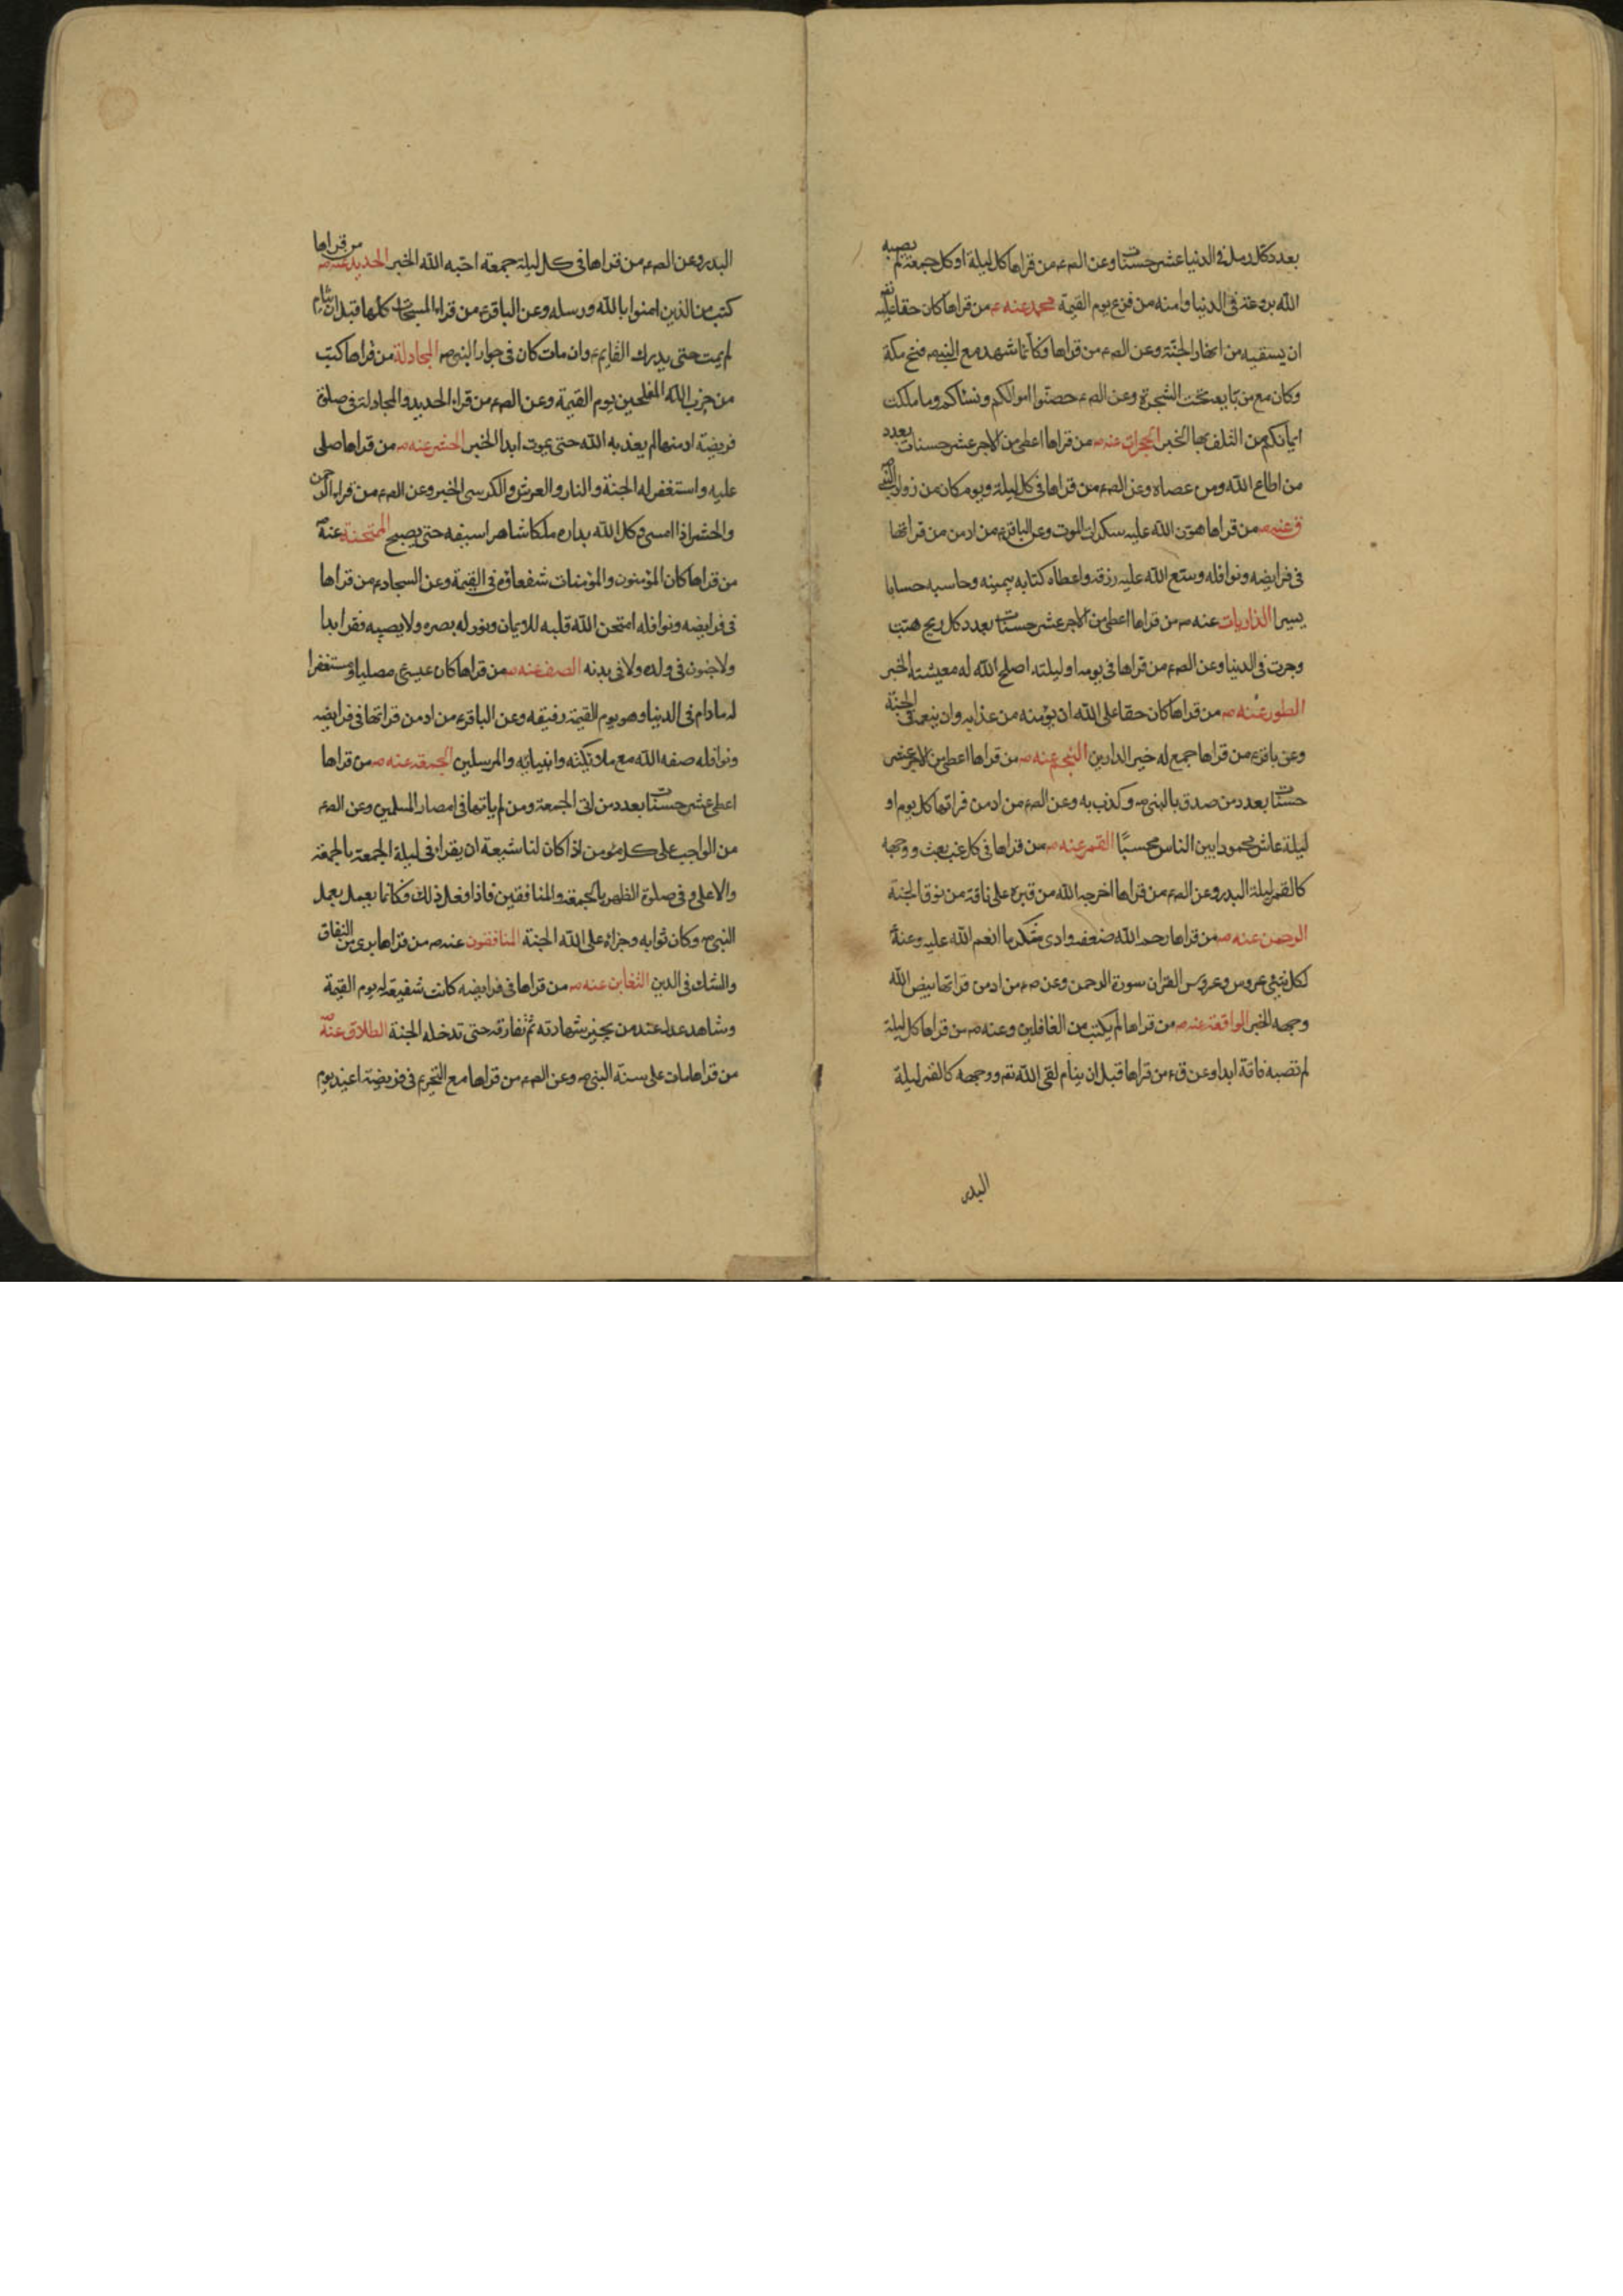 بعدد كل رمل فى الدنيا عشر حسنات وعن الص٤ من قراها كل ليلة او كل جمعة لم يصبه
الله بروعة فى الدنيا وامنه من فزع يوم القيمة محمد عنه ٤ من قراها كان حقا عليه تع
ان يسقيه من انهار الجنة وعن الص٤ من قراها فكانما شهد مع النبى ص فتح مكة
وكان مع من بايع تحت الشجرة وعن الص٤ حصنوا اموالكم ونسائكم وما ملكت
ايمانكم من التلف بها الخبر الحجرات عنه ص من قراها اعطى من الاجر عشر حسنات بعدد
من اطاع الله ومن عصاه وعن الص٤ من قراها فى كل ليلة ويوم كان من زوار النبى ص
ق عنه ص من قراها هون الله عليه سكرات الموت وعن الباقر٤ من ادمن من قراتها
فى فرايضه ونوافله وسع الله عليه رزقه واعطاه كتابه بيمينه وحاسبه حسابا
يسيرا الذاريات عنه ص من قراها اعطى من الاجر عشر حسنات بعدد كل ريح هبت
وجرت فى الدنيا وعن الص٤ من قراها فى يومه او ليلته اصلح الله له معيشته الخبر
الطور عنه ص من قراها كان حقا على الله ان يؤمنه من عذابه وان ينعمه فى الجنة
وعن باقر٤ من قراها جمع له خير الدارين النجم عنه ص من قراها اعطى من الاجر عشر
حسنات بعدد من صدق بالنبى ص وكذب به وعن الص٤ من ادمن قراتها كل يوم او
ليلة عاش محمودا بين الناس محببا القمر عنه ص من قراها فى كل غب بعث ووجهه
كالقمر ليلة البدر وعن الص٤ من قراها اخرجه الله من قبره على ناقة من نوق الجنة
الرحمن عنه ص من قراها رحم الله ضعفه وادى شكر ما انعم الله عليه وعنه ص
لكل شئ عروس وعروس القران سورة الرحمن وعن ص٤ من ادمن قراتها بيض الله
وجهه الخبر الواقعة عنه ص من قراها لم يكتب من الغافلين وعنه ص من قراها كل ليلة
لم تصبه فاقة ابدا وعن ق٤ من قراها قبل ان ينام لقى الله تع ووجهه كالقمر ليلة
البدر
البدر وعن الص٤ من قراها فى كل ليلة جمعة احبه الله الخبر الحديد عنه ص من قراها
كتب من الذين امنوا بالله ورسله وعن الباقر٤ من قراء المسبحات كلها قبل ان ينام
لم يمت حتى يدرك القايم٤ وان مات كان فى جوار النبى ص المجادلة من قراها كتب
من حزب الله المفلحين يوم القيمة وعن الص٤ من قراء الحديد والمجادلة فى صلوة
فريضة ادمنها لم يعذبه الله حتى يموت ابدا الخبر الحشر عنه ص من قراها صلى
عليه واستغفر له الجنة والنار والعرش والكرسى الخبر وعن الص٤ من قراء الرحمن
والحشر اذا امسى وكل الله بداره ملكا شاهرا سيفه حتى يصبح الممتحنة عنه ص
من قراها كان المؤمنون والمؤمنات شفعاؤه فى القيمة وعن السجاد٤ من قراها
فى فرايضه ونوافله امتحن الله قلبه للايمان ونور له بصره ولا يصيبه فقر ابدا
ولا جنون فى ولده ولا فى بدنه الصف عنه ص من قراها كان عيسى مصليا ومستغفرا
له ما دام فى الدنيا وهو يوم القيمة رفيقه وعن الباقر٤ من ادمن قراتها فى فرايضه
ونوافله صفه الله مع ملائكته وانبيائه والمرسلين الجمعة عنه ص من قراها
اعطى عشر حسنات بعدد من اتى الجمعة ومن لم ياتها فى امصار المسلمين وعن الص٤
من الواجب على كل مؤمن اذا كان لنا شيعة ان يقراء فى ليلة الجمعة بالجمعة
والاعلى وفى صلوة الظهر بالجمعة والمنافقين فاذا فعل ذلك فكانما يعمل بعمل
النبى ص وكان ثوابه وجزائه على الله الجنة المنافقون عنه ص من قراها برى من النفاق
والشك فى الدين التغابن عنه ص من قراها فى فرايضه كانت شفيعة له يوم القيمة
وشاهد عدل عند من يجيز شهادته ثم تفارقه حتى تدخله الجنة الطلاق عنه ص
من قراها مات على سنة النبى ص وعن الص٤ من قراها مع التحريم فى فريضة اعيذ يوم